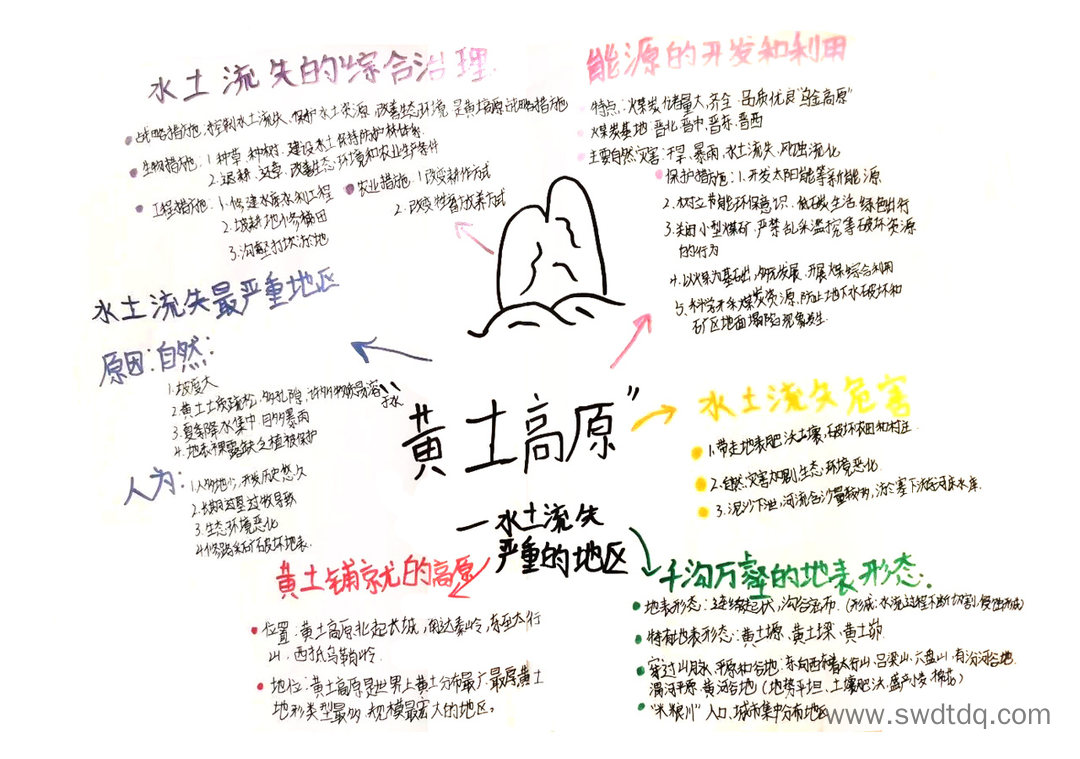 水土流失的综合治理
战略措施:控制水土流失,保护水土资源,改善生态环境,是黄土高原战略措施
生物措施:1.种草、种树、建设水土保持防护林体系
2.退耕、还草、改善生态环境和农业生产条件
工程措施:1.修建水库水利工程
2.坡耕地修梯田
3.沟壑打坝淤地
农业措施:1.改变耕作方式
2.改变牲畜放养方式
能源的开发和利用
特点:煤炭储量大,齐全、品质优良"乌金高原"
煤炭基地:晋北、晋中、晋东、晋西
主要自然灾害:干旱、暴雨、水土流失、风蚀沙化
保护措施:1.开发太阳能等新能源
2.树立节能环保意识、低碳生活、绿色出行
3.关闭小型煤矿,严禁乱采滥挖等破坏资源
的行为
4.以煤为基础,多元发展,开展煤综合利用
5.科学开采煤炭资源,防止地下水破坏和
矿区地面塌陷现象发生.
水土流失最严重地区
原因:自然:
1.坡度大
2.黄土土质疏松,多孔隙,许多物质易溶
于水
3.夏季降水集中,且多暴雨
4.地表裸露缺乏植被保护
人为:
1.人多地少,开发历史悠久
2.长期过垦过牧导致
3.生态环境恶化
4.修路采矿破坏地表.
黄土高原"
—水土流失
严重的地区
水土流失危害
1.带走地表肥沃土壤,破坏农田和村庄.
2.自然灾害加剧,生态环境恶化.
3.泥沙下泄,河流含沙量较多,淤塞下游河床水库.
黄土铺就的高原
位置:黄土高原北起长城,南达秦岭,东至太行
山,西抵乌鞘岭.
地位:黄土高原是世界上黄土分布最广、最厚黄土
地形类型最多、规模最宏大的地区。
千沟万壑的地表形态:
地表形态:连绵起伏,沟谷密布.(形成:水流过程不断切割、侵蚀形成)
特有地表形态:黄土塬、黄土梁、黄土峁
穿过山脉、平原和谷地:东向西有着太行山、吕梁山、六盘山,有汾河谷地.
渭河平原、黄河谷地(地势平坦、土壤肥沃、盛产小麦、棉花)
"米粮川"人口、城市集中分布地区
www.swdtdq.com